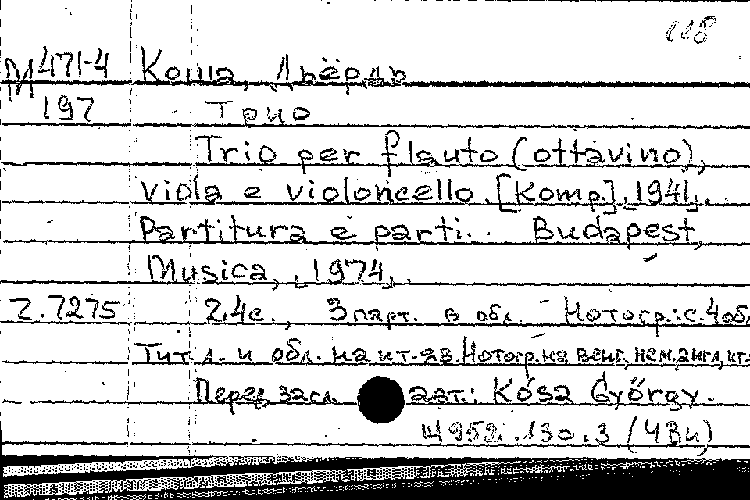 118
М 471-4 Коша, Дьёрдь
197 Трио
Trio per flauto (ottavino),
viola e violoncello. [Komp.] 1941.
Partitura e parti. Budapest,
Musica, 1974.
Z.7275 24 с., 3 парт. в обл. Нотогр.: с. 4 обл
Тит. л. и обл. на ит. яз. Нотогр. на венг., нем. англ., ит.
Перед загл. авт.: Kósa György.
952. 130. 3 (4Ви)